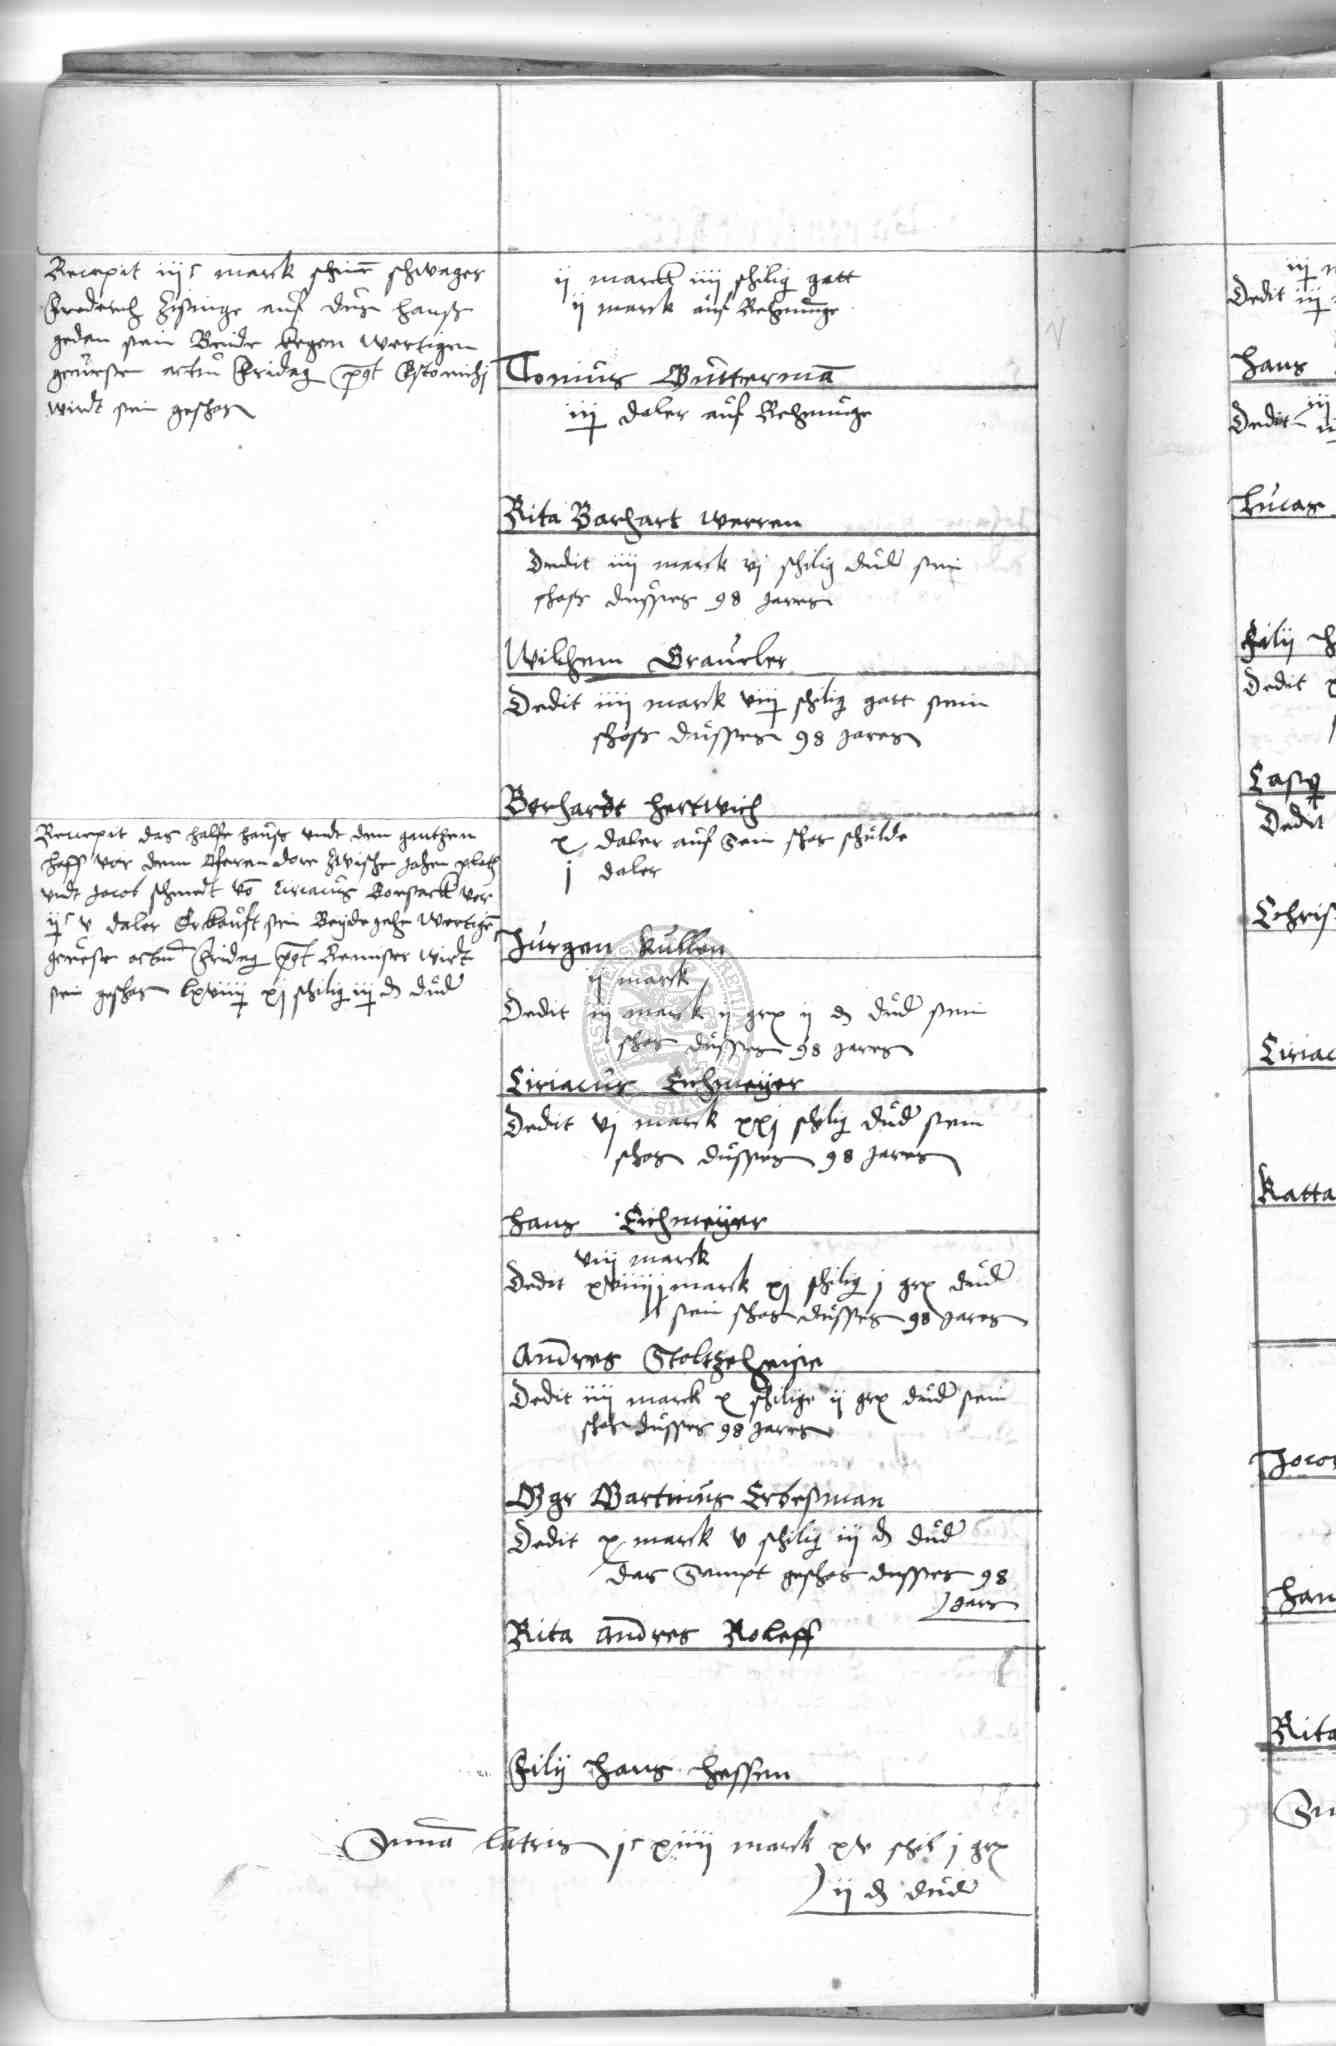 Recepit iiijc marck schwager
Frederich auf hauß
gedan sein Beide kegen Wertigen
gewesse actum Fridag post
wirdt sein geschos
ij marck iiij schilig gatt
ij marck auf Rechnunge
Tonius Butterman
iij daler auf Rechnunge
Rita Barhart Werren
Dedit iiij marck vj schilig dud sein
schoß dusses 98 Jares
Wilhem Graucler
Dedit iiij marck viij schilig gatt sein
schoß dusses 98 Jares
Berhardt Hertwich
x daler auf sein schos schulde
j daler
Recepit das halfe hauß undt den gantzen
hoff vor dem dore zwischen
undt Jacob schmedt von Ciriacus vor
ijc v daler Erkauft sein Beyde gehen Wertigen
gewese actum Fridag post wirdt
sein geschos lxviiij xj schilig iij d dud
Jurgen Kullen
ij marck
Dedit iij marck ij grx ij d dud sein
schos dusses 98 Jares
Ciriacus Eichmeyer
Dedit vj marck xxj schilig dud sein
schos dusses 98 Jares
Hans Eichmeyer
viij marck
Dedit marck xj schilig j grx dud
sein schos dusses 98 Jares
Andres Stoltzeheise
Dedit iiij marck x schilige ij grx dud sein
schos dusses 98 Jares
Mgr Martinus Erbesman
Dedit x marck v schilig iij d dud
das Sempt geschos dusses 98
Jars
Rita Andres Roleff
Filij Hans Hessen
Summa latris jc xiiij marck xv schil j grx
ij d dud
Dedit iij
Hans
Dedit
Lucas
Filij H
Dedit
Casp
Dedit
Chris
Ciriac
Katta
Jaco
Han
Rita
Su